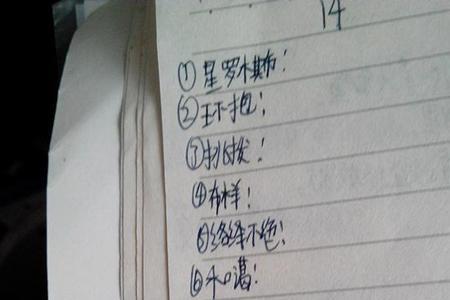 14
①星罗棋布!
②环抱;
③挑拨!
④布样!
⑤络绎不绝!
⑥